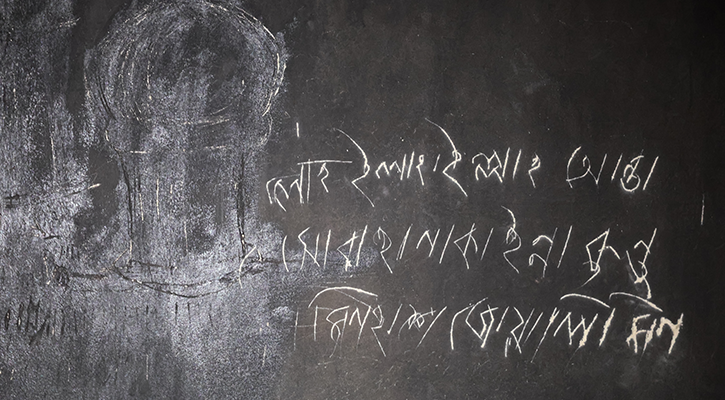 ইলাহাইল্লাহ আন্তা
সোবাহানাকাইন্না কুন্তু
মিনহাল জোয়ালিমিন